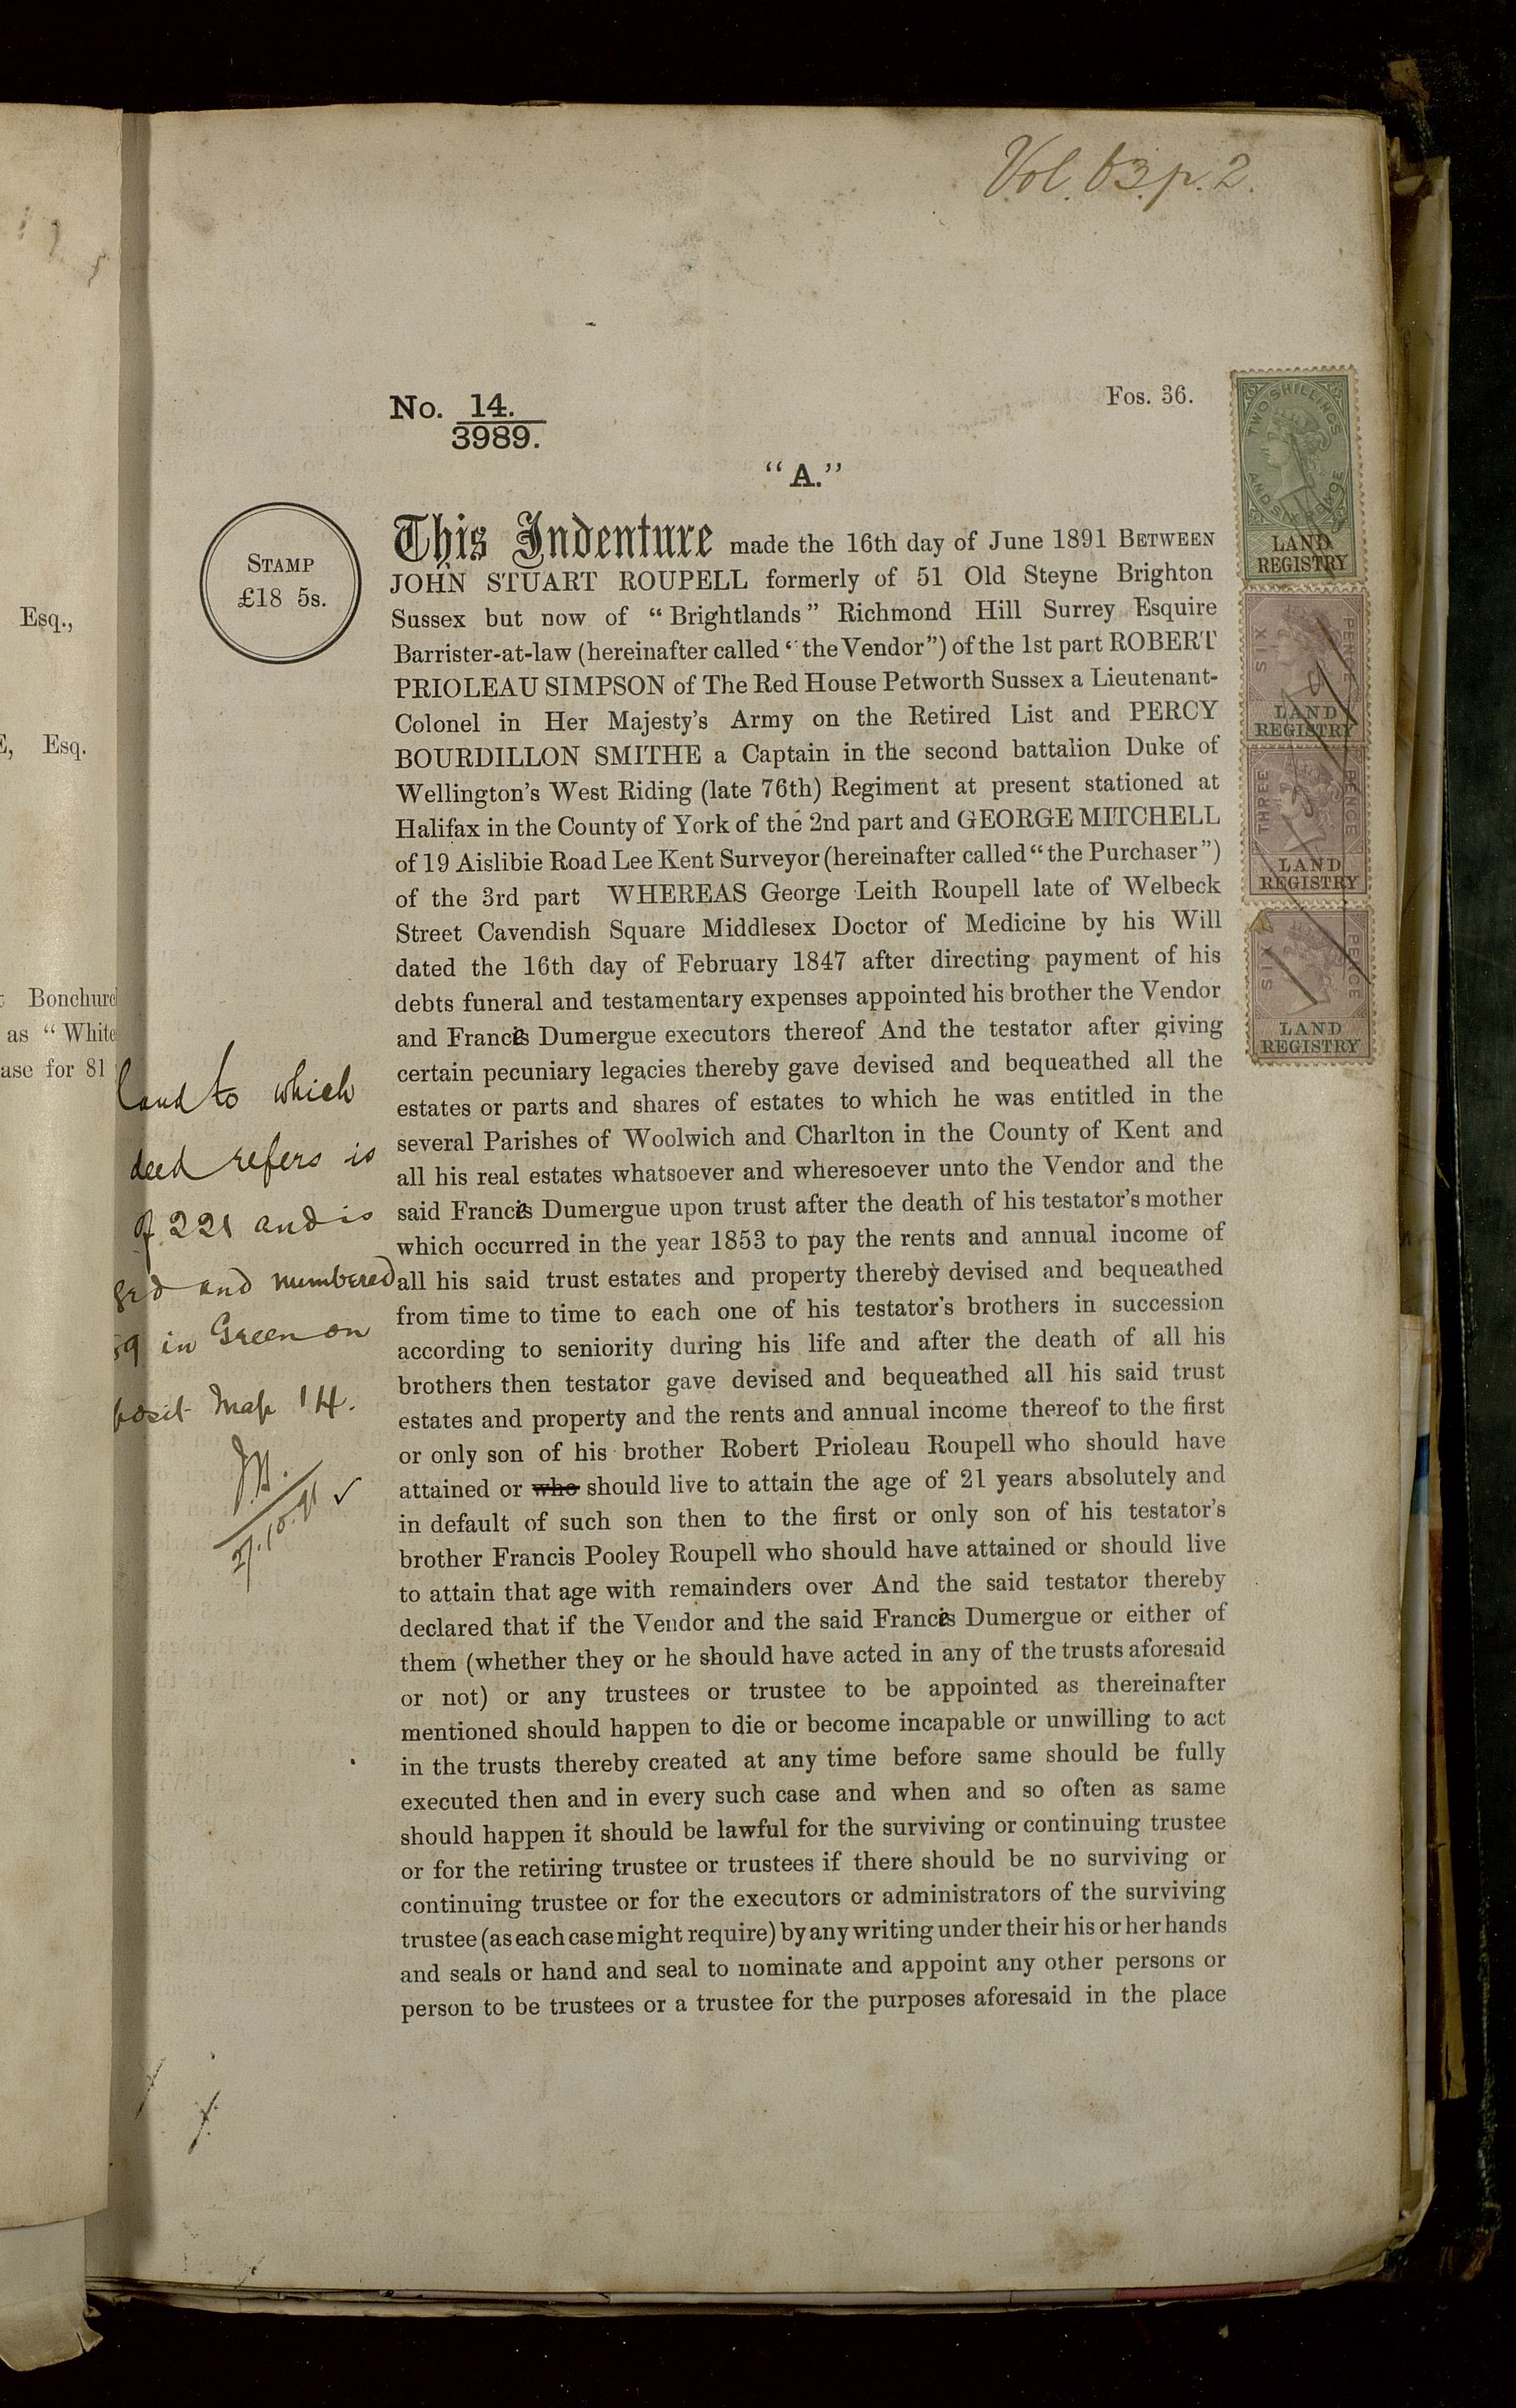 Vol. 63 p. 2.
Esq.,
Esq.
Bonchurc
as “White
ase for 81
No. 14.
3989.
Fos. 36.
“A.”
STAMP
£18 5s.
TWO SHILLINGS
AND SIX PENCE
LAND
REGISTRY
SIX PENCE
LAND
REGISTRY
THREE PENCE
LAND
REGISTRY
SIX PENCE
LAND
REGISTRY
This Indenture made the 16th day of June 1891 BETWEEN
JOHN STUART ROUPELL formerly of 51 Old Steyne Brighton
Sussex but now of “Brightlands” Richmond Hill Surrey Esquire
Barrister-at-law (hereinafter called “the Vendor”) of the 1st part ROBERT
PRIOLEAU SIMPSON of The Red House Petworth Sussex a Lieutenant-
Colonel in Her Majesty's Army on the Retired List and PERCY
BOURDILLON SMITHE a Captain in the second battalion Duke of
Wellington's West Riding (late 76th) Regiment at present stationed at
Halifax in the County of York of the 2nd part and GEORGE MITCHELL
of 19 Aislibie Road Lee Kent Surveyor (hereinafter called “the Purchaser”)
of the 3rd part WHEREAS George Leith Roupell late of Welbeck
Street Cavendish Square Middlesex Doctor of Medicine by his Will
dated the 16th day of February 1847 after directing payment of his
debts funeral and testamentary expenses appointed his brother the Vendor
and Francis Dumergue executors thereof And the testator after giving
certain pecuniary legacies thereby gave devised and bequeathed all the
estates or parts and shares of estates to which he was entitled in the
several Parishes of Woolwich and Charlton in the County of Kent and
all his real estates whatsoever and wheresoever unto the Vendor and the
said Francis Dumergue upon trust after the death of his testator's mother
which occurred in the year 1853 to pay the rents and annual income of
all his said trust estates and property thereby devised and bequeathed
from time to time to each one of his testator's brothers in succession
according to seniority during his life and after the death of all his
brothers then testator gave devised and bequeathed all his said trust
estates and property and the rents and annual income thereof to the first
or only son of his brother Robert Prioleau Roupell who should have
attained or who should live to attain the age of 21 years absolutely and
in default of such son then to the first or only son of his testator's
brother Francis Pooley Roupell who should have attained or should live
to attain that age with remainders over And the said testator thereby
declared that if the Vendor and the said Francis Dumergue or either of
them (whether they or he should have acted in any of the trusts aforesaid
or not) or any trustees or trustee to be appointed as thereinafter
mentioned should happen to die or become incapable or unwilling to act
in the trusts thereby created at any time before same should be fully
executed then and in every such case and when and so often as same
should happen it should be lawful for the surviving or continuing trustee
or for the retiring trustee or trustees if there should be no surviving or
continuing trustee or for the executors or administrators of the surviving
trustee (as each case might require) by any writing under their his or her hands
and seals or hand and seal to nominate and appoint any other persons or
person to be trustees or a trustee for the purposes aforesaid in the place
land to which
deed refers is
of 221 and is
ged and numbered
59 in Green on
posit Map 14.
27.10.91